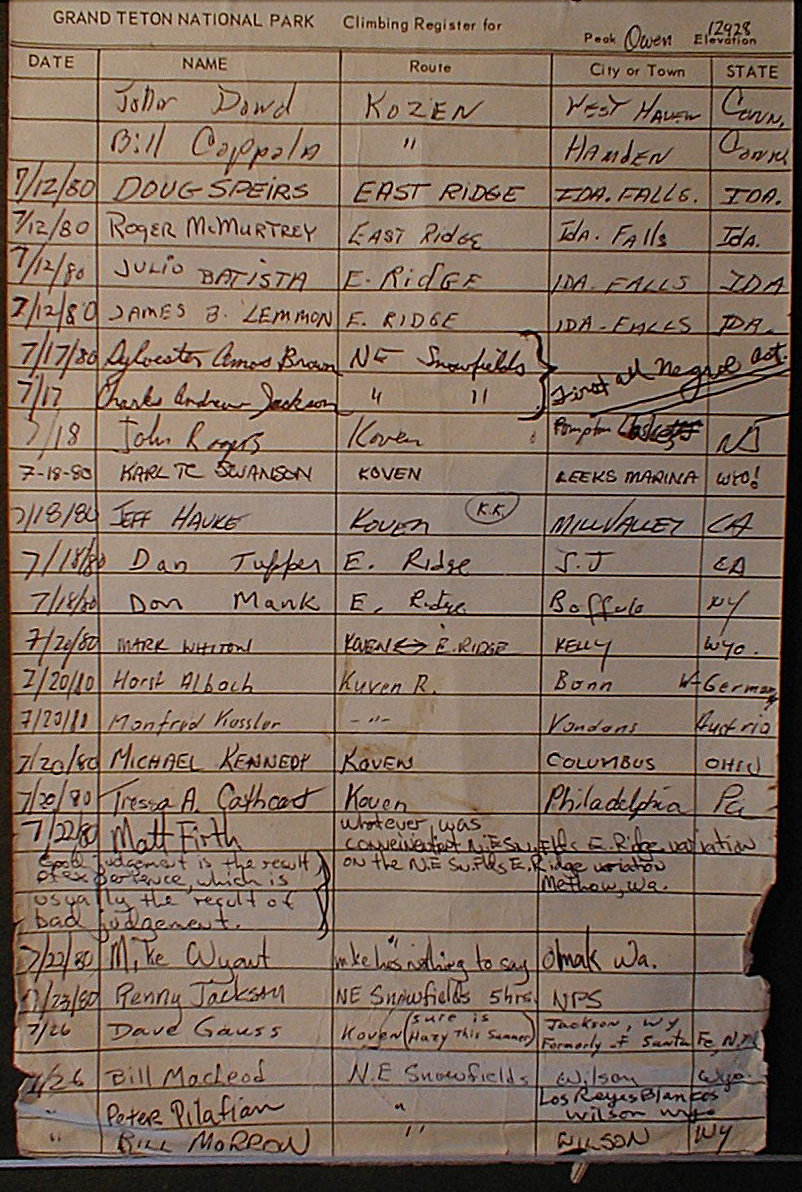 GRAND TETON NATIONAL PARK Climbing Register for Peak Owen Elevation 12928
DATE NAME Route City or Town STATE
John Dowd KOZEN WEST HAVEN CONN.
Bill Coppola " HAMDEN CONN.
7/12/80 DOUG SPEIRS EAST RIDGE IDA. FALLS. IDA.
7/12/80 ROGER McMURTREY EAST RidGE IdA. FAlls Ida.
7/12/80 JULIO BATISTA E. RidGE IDA-FALLS IDA
7/12/80 JAMES B. LEMMON E. RIDGE IDA-FALLS IDA.
7/17/80 Sylvester Amos Brown NE Snowfields } First all Negroe act.
7/17 Charles Andrew Jackson " "
7/18 John Rogers Koven Pompton NJ
7-18-80 KARL TC SWANSON KOVEN LEEKS MARINA WYO!
7/18/80 JEFF HAUKE KOVEN K.K. MILL VALLEY CA
7/18/80 Dan Tupper E. Ridge S.J CA
7/18/80 Don Mank E. Ridge Boffulo NY
7/20/80 MARK WHITON KOVEN <-> E. RIDGE KELLY WYO.
7/20/80 Horst Albach Kuven R. Bonn W-Germany
7/20/80 Manfred Kossler - " - Vandans Austria
7/20/80 MICHAEL KENNEDY KOVEN COLUMBUS OHIO
7/20/80 Tressa A. Cathcart Koven Philadelphia Pa
7/22/80 Matt Firth whatever was
convienentent N.E Sw. Flds E. Ridge variation
Good judgement is the result on the N.E Sw.Flds E. Ridge variation
of experience, which is Methow, Wa.
usually the result of
bad judgement.
7/22/80 Mike Wyant " mke has nothing to say Omak Wa.
7/23/80 Renny JACKSON NE Snowfields 5hrs. NPS
7/26 Dave Gauss Koven (sure is Hazy This Summer) Jackson, WY Formerly of Santa Fe, N.M.
7/26 Bill MacLeod N.E Snowfields Wilson Wyo.
" Peter Pilafian " Los Reyes Blancos
Wilson Wyo
" BILL MORROW " WILSON WY